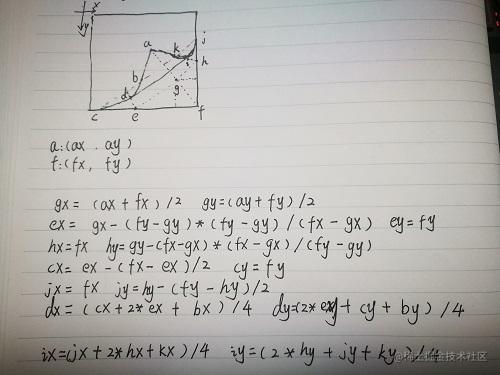 x
y
j
a k
h
b g
d
c e f
a:(ax. ay)
f:(fx, fy)
gx = (ax + fx) /2 gy=(ay+fy)/2
ex = gx-(fy-gy)*(fy-gy)/(fx-gx) ey=fy
hx=fx hy=gy-(fx-gx)*(fx-gx)/(fy-gy)
cx= ex -(fx- ex)/2 cy=fy
jx = fx jy=hy-(fy-hy)/2
dx= (cx+2*ex + bx) /4 dy=(2*ey+cy+by)/4
ix=(jx+2*hx+kx)/4 iy=(2*hy+jy+ky)/4
@稀土掘金技术社区